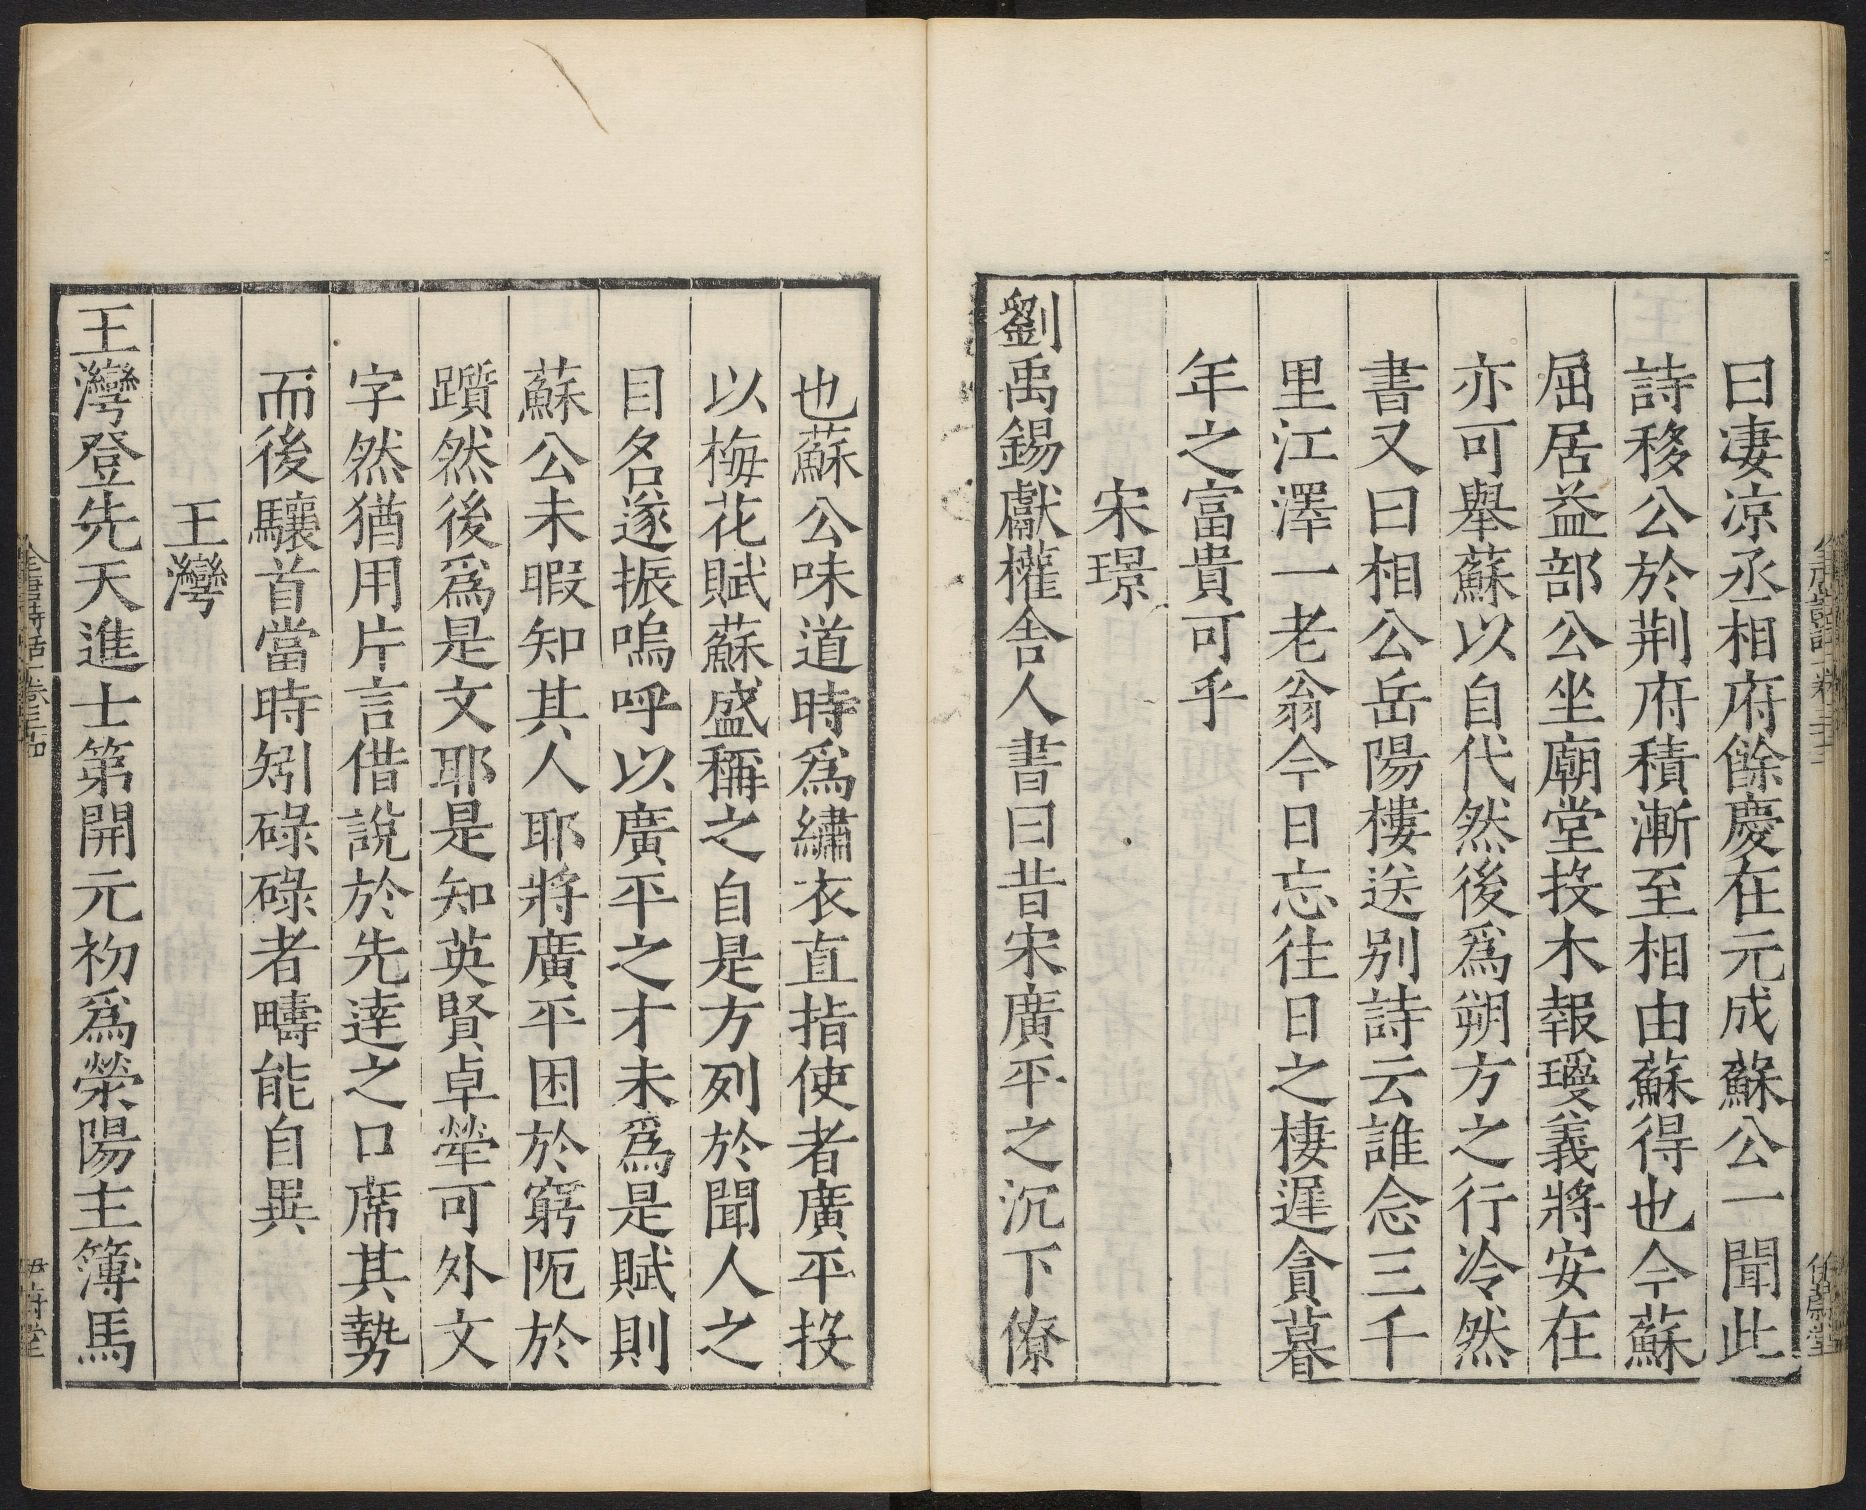 曰凄凉丞相府餘慶在元成蘇公一聞此
詩移公於荆府積漸至相由蘇得也今蘇
屈居益部公坐廟堂投木報瓊義將安在
亦可舉蘇以自代然後爲朔方之行冷然
書又曰相公岳陽樓送别詩云誰念三千
里江澤一老翁今日忘往日之棲遲貪暮
年之富貴可乎
宋璟
劉禹錫獻權舍人書曰昔宋廣平之沉下僚
也蘇公味道時爲繡衣直指使者廣平投
以梅花賦蘇盛稱之自是方列於聞人之
目名遂振嗚呼以廣平之才未爲是賦則
蘇公未暇知其人耶將廣平困於窮阨於
躓然後爲是文耶是知英賢卓犖可外文
字然猶用片言借說於先達之口席其勢
而後驤首當時矧碌碌者疇能自異
王灣
王灣登先天進士第開元初爲滎陽主簿馬